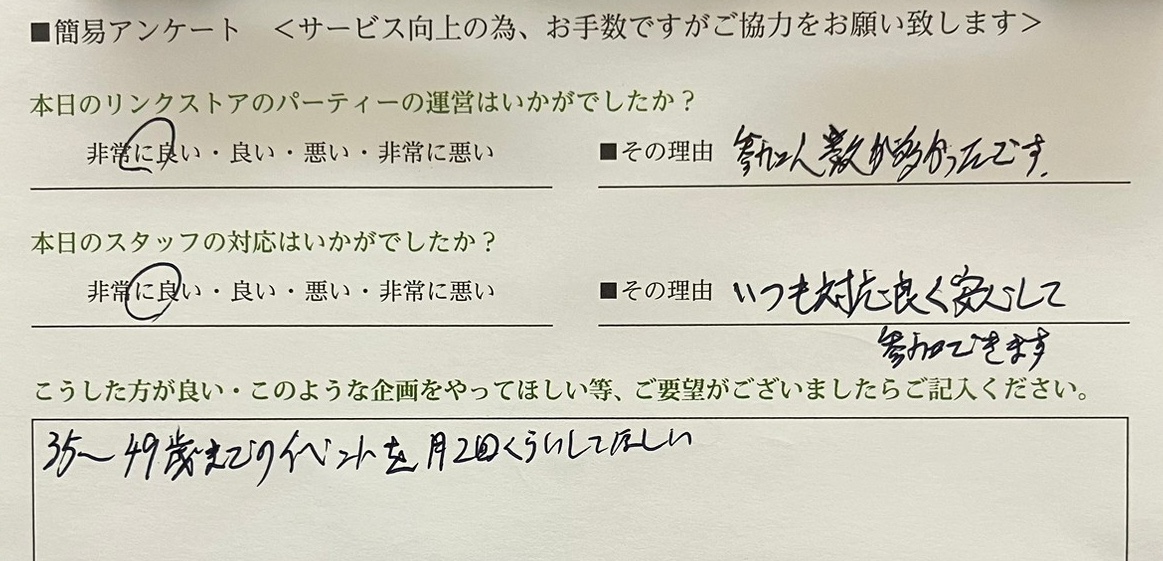 ■簡易アンケート ＜サービス向上の為、お手数ですがご協力をお願い致します＞
本日のリンクストアのパーティーの運営はいかがでしたか？
非常に良い・良い・悪い・非常に悪い ■その理由 参加人数が多かったです.
本日のスタッフの対応はいかがでしたか？
非常に良い・良い・悪い・非常に悪い ■その理由 いつも対応良く安心して
参加できます
こうした方が良い・このような企画をやってほしい等、ご要望がございましたらご記入ください。
35〜49歳までのイベントを月2回くらいしてほしい